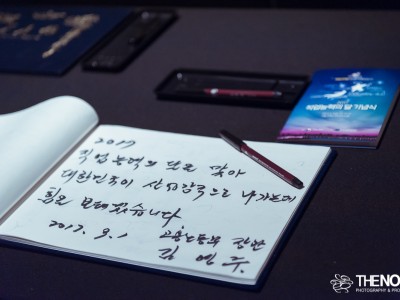 2017
직업능력의 달을 맞아
대한민국이 산업강국으로 나가는데
힘을 보태겠습니다
2017. 9. 1
고용노동부 장관
김영주
직업능력의 달 기념식
THENO
PHOTOGRAPHY & PRO